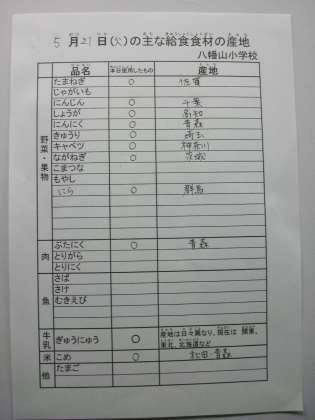 5月21日(火)の主な給食食材の産地
八幡山小学校
品名 本日使用したもの 産地
野菜・果物
たまねぎ ○ 佐賀
じゃがいも
にんじん ○ 千葉
しょうが ○ 高知
にんにく ○ 青森
きゅうり ○ 埼玉
キャベツ ○ 神奈川
ながねぎ ○ 茨城
こまつな
もやし
にら ○ 群馬
肉
ぶたにく ○ 青森
とりがら
とりにく
魚
さば
さけ
むきえび
牛乳 ぎゅうにゅう ○ 産地は日々異なり、現在は 関東、
東北、北海道など
米 こめ ○ 秋田 青森
他 たまご